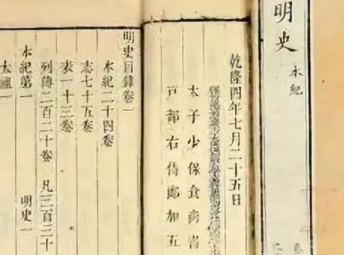 明史
本紀
乾隆四年七月二十五日
太子少保食
戸部右侍郎加五
明史目錄卷一
本紀二十四卷
志七十五卷
表一十三卷
列傳二百二十卷 凡三百三十
本紀第一 明史一
太祖一